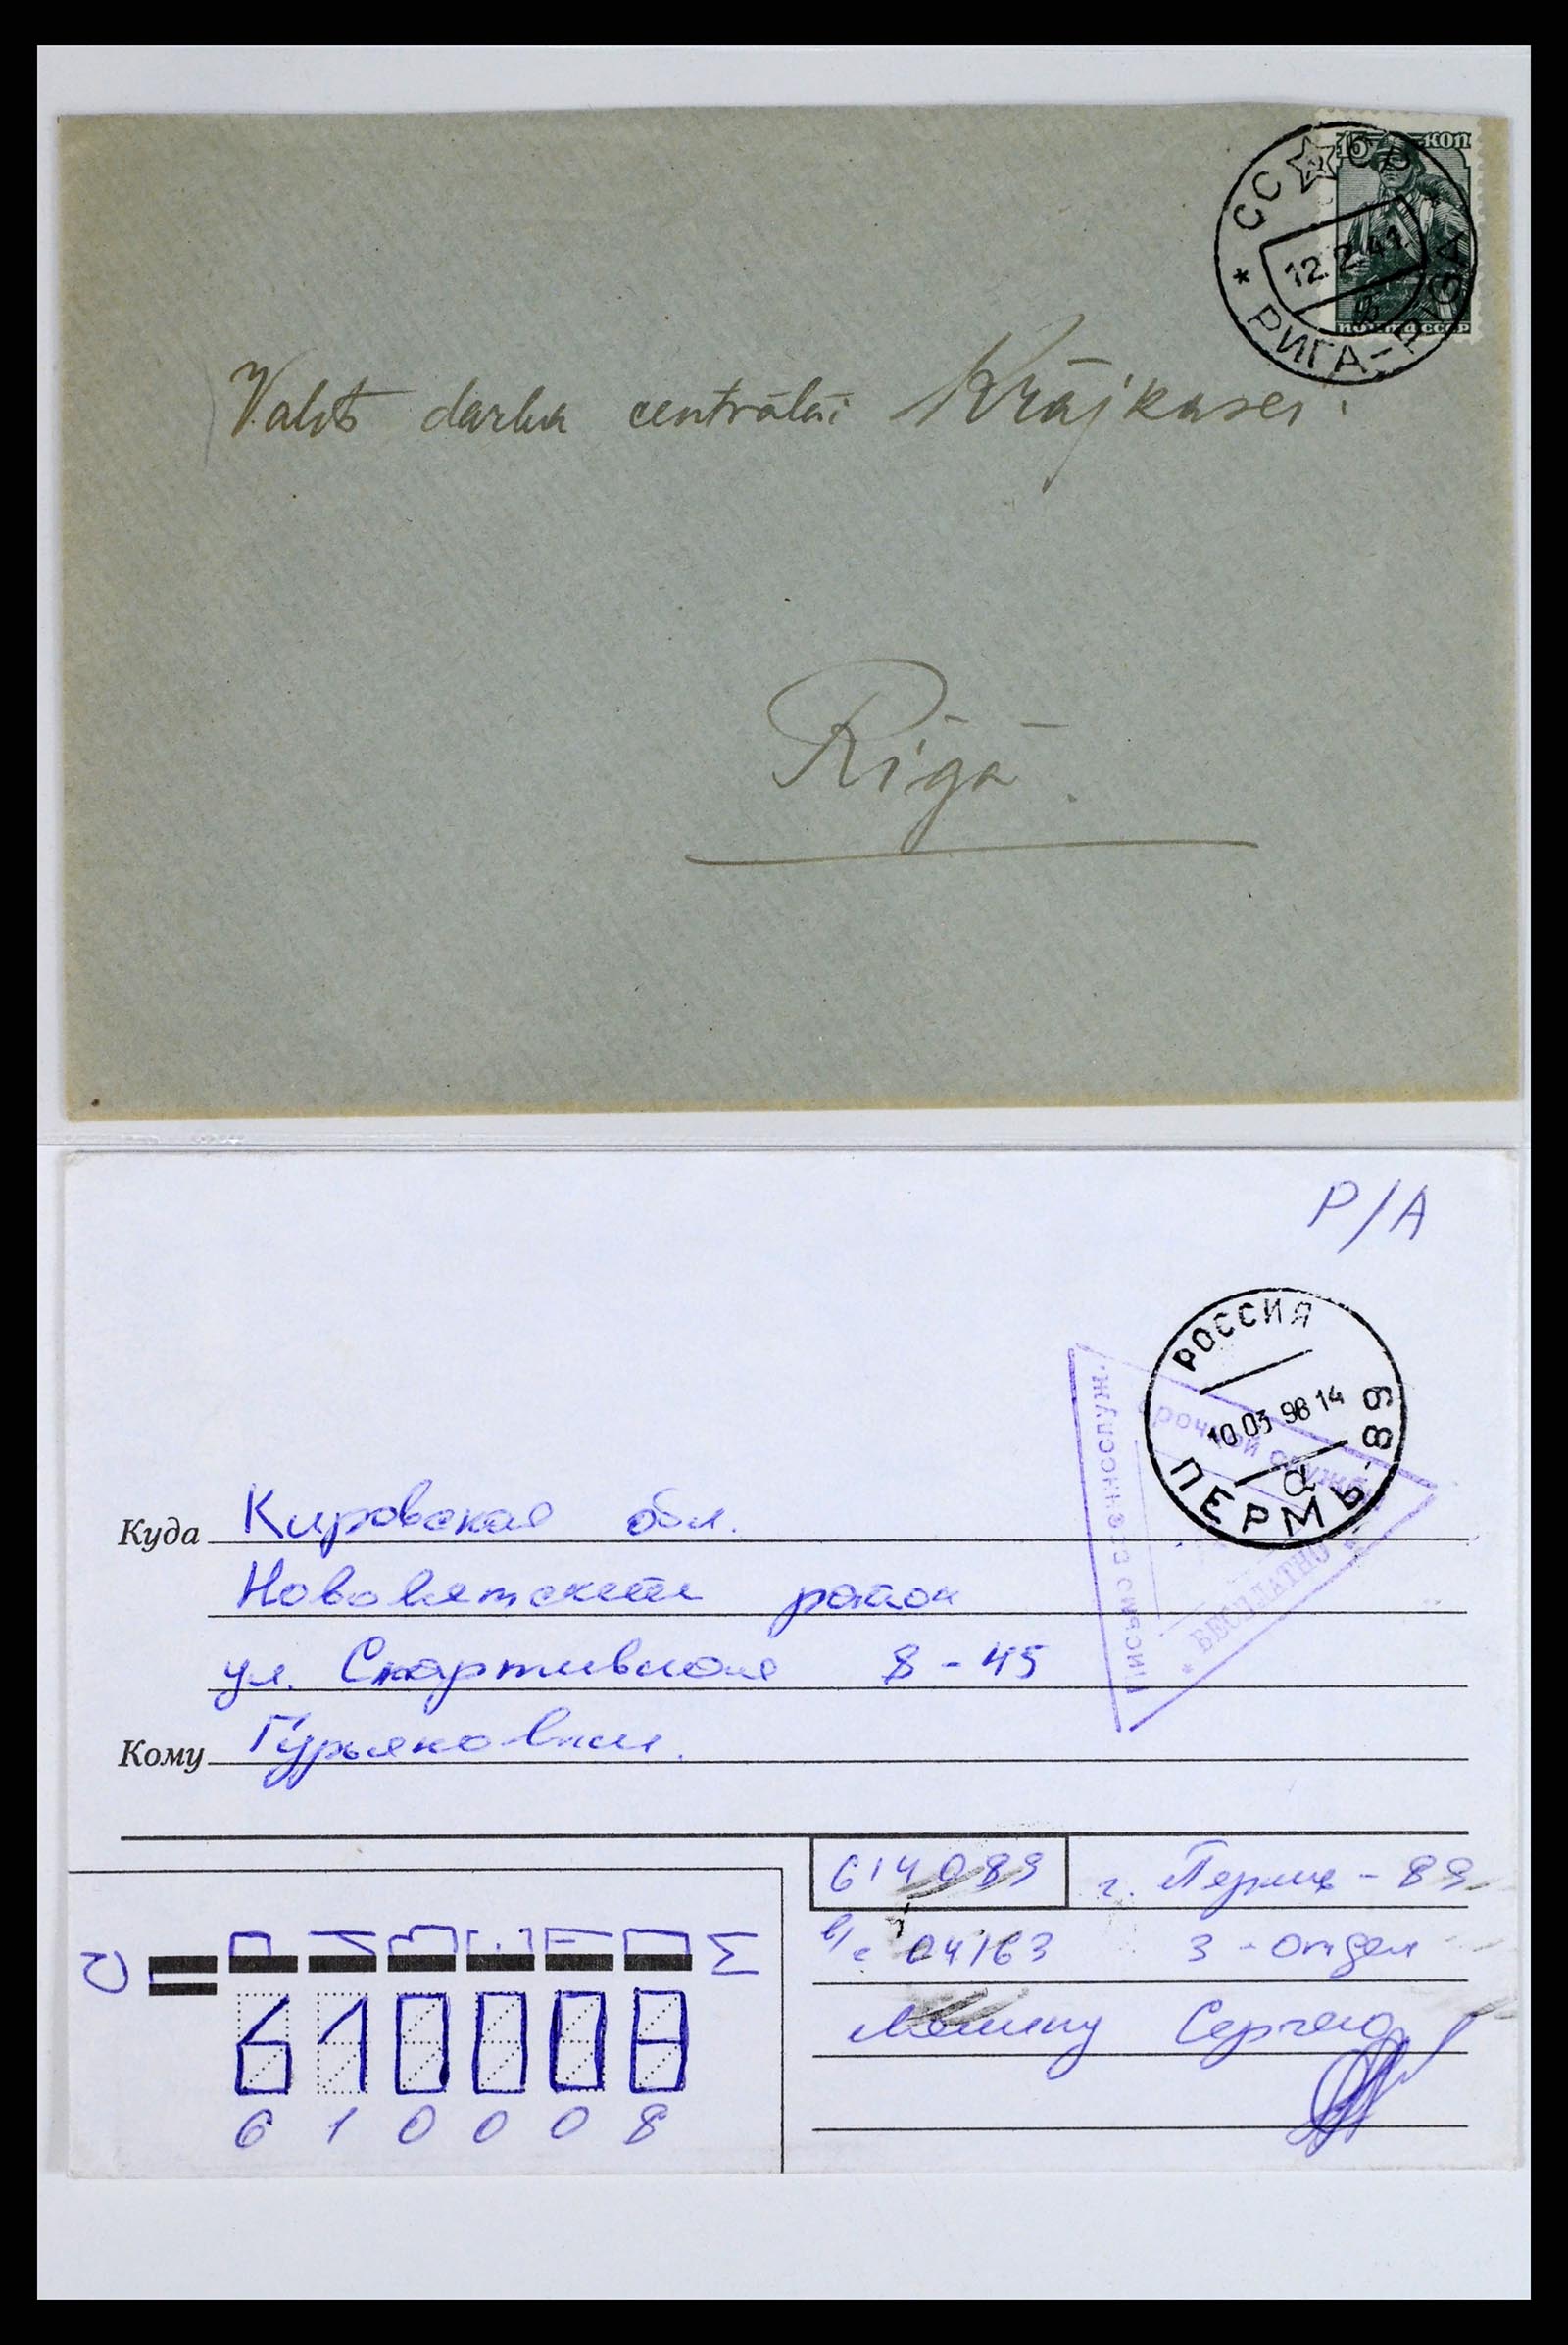 15 КОП
СССР
12.2.41
РИГА-RIGA
ПОЧТА СССР
Valsts darba centrālai Krājkasei.
Rīgā.
Р/А
РОССИЯ
10 03 98 14
ПЕРМЬ-89
а
Письмо военнослуж.
срочной службы
* БЕСПЛАТНО *
Куда Кировская обл.
Нововятский район
ул. Спортивная 8-45
Кому Гурьяновым.
614089 г. Пермь-89
в/ч 04163 3-отдел
Сергею
610008
6 1 0 0 0 8